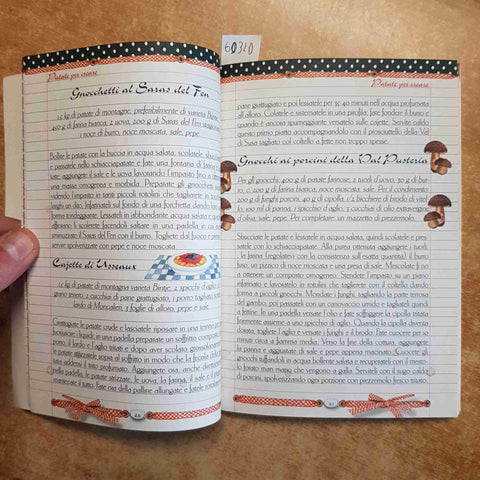 60310
Patate per cenare
Gnocchetti al Saras del Fen
1,5 kg di patate di montagna, preferibilmente di varietà Bintje,
400 g di farina bianca, 2 uova, 200 g di Saras del Fen stagionato,
1 noce di burro, noce moscata, sale, pepe.
Bollite le patate con la buccia in acqua salata, scolatele, sbucciatele
e pestatele nello schiacciapatate e fate una fontana di farina e
patate, aggiungete il sale e le uova lavorando l'impasto fino a ottenere
una massa omogenea e morbida. Preparate gli gnocchetti dividendo
l'impasto in tanti piccoli rotolini che taglierete in tanti
lunghi un dito. Infarinateli sul fondo di una forchetta dando loro
forma tondeggiante. Lessateli in abbondante acqua salata e quando
affiorano li scolerete facendoli saltare in una padella dove avrete
sminuzzato il Saras del Fen con il burro. Togliete dal fuoco e
servire spolverizzate con pepe e noce moscata.
Cajette di Usseaux
1,2 kg di patate di montagna varietà Bintje, 2 spicchi d'aglio,
grano tenero, 2 cucchiai di pane grattugiato, 1 porro tagliato sottile,
lardo di Moncalieri, 3 foglie di alloro, pepe e sale.
Grattugiate le patate crude e lasciatele riposare in una terrina per
buttare i liquidi; in una padella preparate un soffritto con
porro, il lardo e l'aglio tritati e dopo aver scolato, grossolanamente
le patate strizzatele sopra al soffritto in modo che la fecola delle
lata addensi il trito profumato. Aggiungete ora, anche direttamente
nella padella, le patate strizzate, le uova, la farina, il sale e il pepe
mantecate il tutto. Fate ora delle palline allungate e fatele rotolare
20
Patate per cenare
pane grattugiato e poi lessatele per 35-40 minuti nell'acqua profumata
all'alloro. Colatele e sistematele in una pirofila; fate fondere il burro e
quando è ancora spumeggiante, versatelo sulle cajette. Servite caldo
questo primo piatto accompagnandolo con il prosciuttello della Val
di Susa tagliato col coltello a fette non troppo spesse.
Gnocchi ai porcini della Val Pusteria
Per gli gnocchi: 400 g di patate farinose, 2 tuorli d'uovo, 30 g di burro,
c. o 200 g di farina bianca, noce moscata, sale. Per il condimento:
200 g di funghi porcini, 40 g di cipolla, 1/2 bicchiere di brodo di vitello,
100 ml di panna, 1 spicchio d'aglio, 2 cucchiai di olio extravergine
d'oliva, sale, pepe. Per completare: un mazzetto di prezzemolo.
Sbucciate le patate e lessatele in acqua salata, quindi scolatele e pressatele
con lo schiacciapatate. Alla purea ottenuta aggiungete i tuorli,
la farina (regolatevi con la consistenza sull'esatta quantità), il burro
fuso, un pizzico di noce moscata e una presa di sale. Mescolate fino a
ottenere un composto omogeneo. Stendete l'impasto su un piano
infarinato e lavoratelo in rotolini che taglierete con il coltello dando
forma a piccoli gnocchi. Mondate i funghi, tagliando la parte terrosa
del gambo, poi passateli con un canovaccio umido e tagliateli quindi
a fettine. Versate in una padella l'olio e fate soffriggere la cipolla tritata
finemente assieme a uno spicchio di aglio. Quando la cipolla diventa
dorata, togliete l'aglio e versate i funghi e il brodo. Fate cuocere per 10
minuti circa a fiamma media. Verso la fine della cottura, aggiungete
la panna e aggiustate di sale e pepe appena macinato. Cuocete gli
gnocchi tuffandoli in acqua bollente salata e recuperateli con il mestolo
forato man mano che vengono a galla. Serviteli con il sugo caldo
di porcini, spolverizzando ogni porzione con prezzemolo fresco tritato.
21